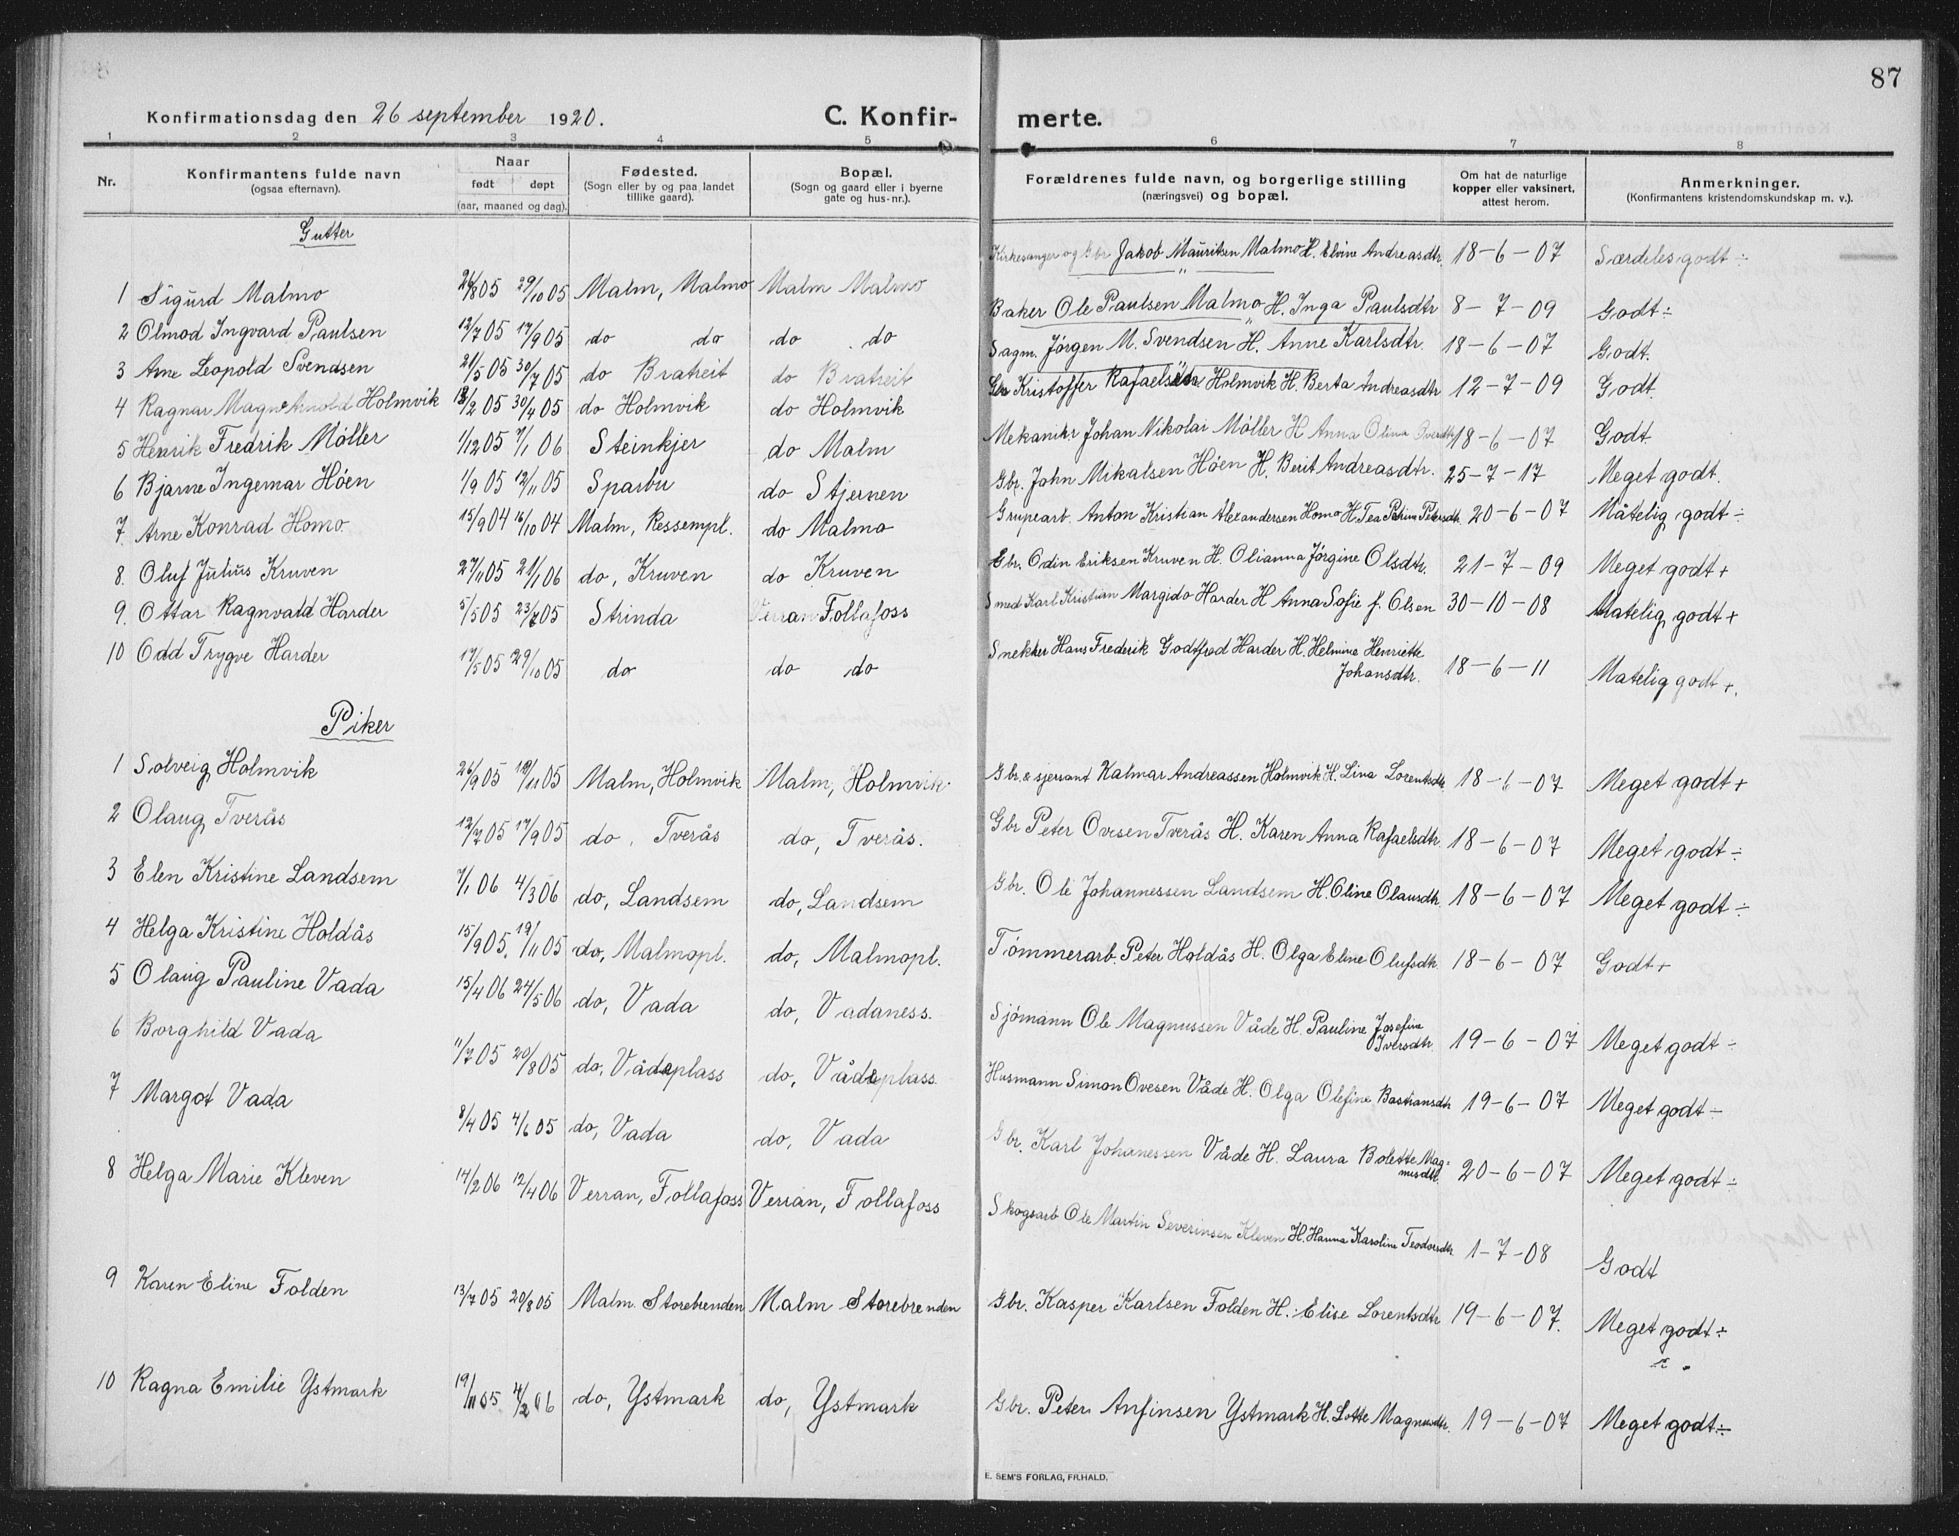 87
Konfirmationsdag den 26 september 1920. C. Konfir- merte.
1 2 3 4 5 6 7 8
Nr. Konfirmantens fulde navn (ogsaa efternavn). Naar født døpt (aar, maaned og dag). Fødested. (Sogn eller by og paa landet tillike gaard). Bopæl. (Sogn og gaard eller i byerne gate og hus-nr.). Forældrenes fulde navn, og borgerlige stilling (næringsvei) og bopæl. Om hat de naturlige kopper eller vaksinert, attest herom. Anmerkninger. (Konfirmantens kristendomskundskap m. v.).
Gutter
1 Sigurd Malmo 26/8 05 29/10 05 Malm, Malmo Malm Malmo Kirkesanger og Gbr Jakob Mauritsen Malmo H. Elvine Andreasdtr. 18-6-07 Særdeles godt ÷
2 Olmod Ingvard Paulsen 12/7 05 17/9 05 do do do do Baker Ole Paulsen Malmo H. Inga Paulsdtr 8-7-09 Godt ÷
3 Arne Leopold Svendsen 21/5 05 30/7 05 do Bratreit do Bratreit Sagm. Jørgen M. Svendsen H. Anne Karlsdtr. 18-6-07 Godt.
4 Ragnar Magne Arnold Holmvik 13/2 05 30/4 05 do Holmvik do Holmvik Gbr Kristoffer Rafaelsen Holmvik H. Berta Andreasdtr 12-7-09 Godt.
5 Henrik Fredrik Møller 1/12 05 7/1 06 Steinkjer do Malm Mekanikr Johan Nikolai Møller H Anna Olina 18-6-07 Godt
6 Bjarne Ingemar Høen 1/9 05 12/11 05 Sparbu do Stjernen Gbr. John Mikalsen Høen H. Berit Andreasdtr. 25-7-17 Meget godt.
7. Arne Konrad Homo 15/9 04 16/10 04 Malm, Ressempl. do Malmo Grupearb. Anton Kristian Alexandersen Homo H. Tea Petrine Petersdtr. 20-6-07 Måtelig godt ÷
8. Oluf Julius Kruven 27/11 05 21/1 06 do, Kruven do Kruven Gbr. Odin Eriksen Kruven H. Olianna Jørgine Olsdtr. 21-7-09 Meget godt +
9. Ottar Ragnvald Harder 5/5 05 23/7 05 Strinda Verran Follafoss Smed Karl Kristian Margido Harder H Anna Sofie f. Olsen 30-10-08 Matelig godt +
10 Odd Trygve Harder 17/5 05 29/10 05 do do do Snekker Hans Frederik Godtfred Harder H. Helmine Henriette Johansdtr. 18-6-11 Matelig godt +.
Piker
1 Solveig Holmvik 26/9 05 19/11 05 Malm, Holmvik Malm, Holmvik Gbr. & sjersant Kalmar Andreassen Holmvik H. Lina Lorentsdtr 18-6-07 Meget godt +
2 Olaug Tverås 12/7 05 17/9 05 do, Tverås do, Tverås. Gbr Peter Ovesen Tverås H. Karen Anna Rafaelsdtr. 18-6-07 Meget godt ÷
3 Elen Kristine Landsem 7/1 06 4/3 06 do, Landsem do, Landsem Gbr. Ole Johannessen Landsem H. Oline Olausdtr. 18-6-07 Meget godt ÷
4 Helga Kristine Holdås 15/9 05. 19/11 05 do, Malmopl. do, Malmopl. Tømmerarb. Peter Holdås H. Olga Eline Olufsdtr. 18-6-07 Godt +
5 Olaug Pauline Vada 15/4 06 24/5 06 do, Vada do, Vadaness. Sjømann Ole Magnussen Våde H. Pauline Josefine Iversdtr. 19-6-07 Meget godt ÷
6 Borghild Vada 11/7 05 20/8 05 do, Vådeplass do, Vådeplass Husmann Simon Ovesen Våde H. Olga Olefine Bastiansdtr 19-6-07 Meget godt -
7 Margot Vada 8/4 05 4/6 05 do, Vada do, Vada Gbr. Karl Johanessen Våde H. Laura Bolette Magnusdtr. 20-6-07 Meget godt ÷
8 Helga Marie Kleven 14/2 06 12/4 06 Verran, Follafoss Verran, Follafoss Skogsarb Ole Martin Severinsen Kleven H. Hanna Karoline Teodorsdtr 1-7-08 Godt
9 Karen Eline Folden 13/7 05 20/8 05 Malm. Storebrenden Malm Storebrenden Gbr. Kasper Karlsen Folden H. Elise Lorentsdtr 19-6-07. Meget godt ÷
10 Ragna Emilie Ystmark 19/11 05 4/2 06 do, Ystmark do, Ystmark Gbr. Peter Anfinsen Ystmark H. Lotte Magnusdtr. 19-6-07 Meget godt ÷
E. SEM'S FORLAG, FR.HALD.